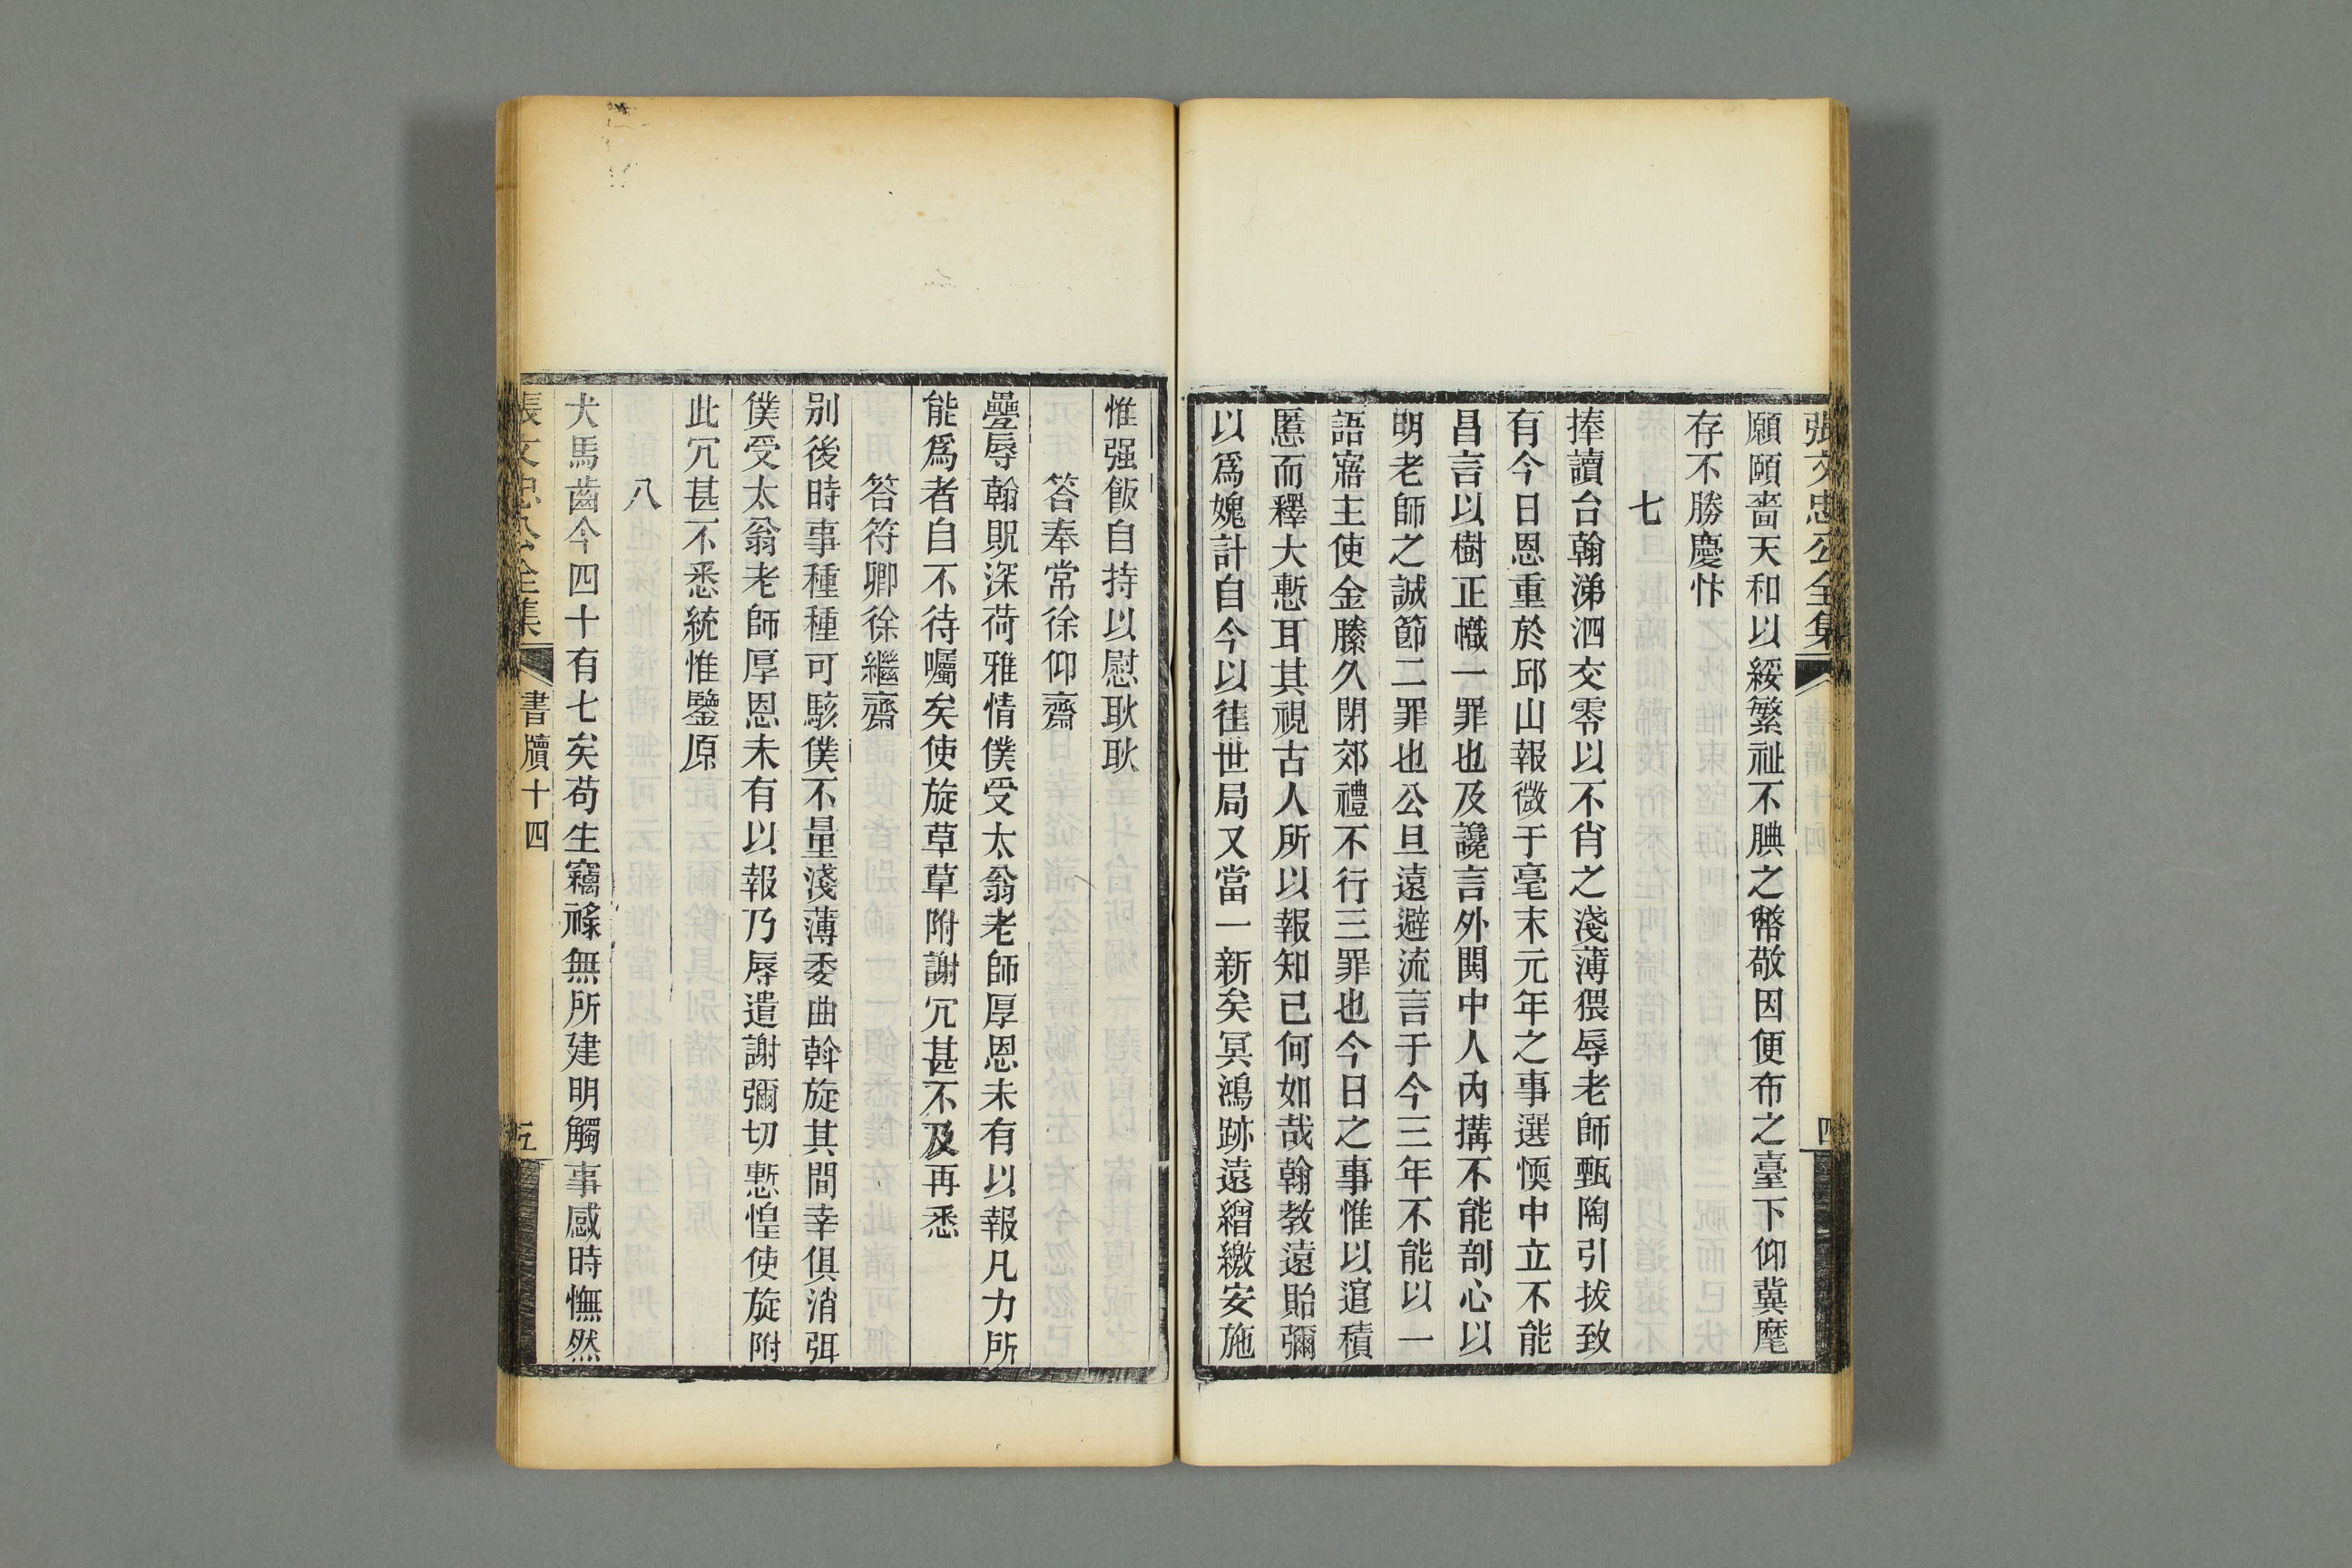 張文忠公全集
四
願頤嗇天和以綏繁祉不腆之幣敬因便布之臺下仰冀麾
存不勝慶忭
七
捧讀台翰涕泗交零以不肖之淺薄猥辱老師甄陶引拔致
有今日恩重於邱山報微于毫末元年之事選愞中立不能
昌言以樹正幟一罪也及讒言外閧中人內搆不能剖心以
明老師之誠節二罪也公旦遠避流言于今三年不能以一
語寤主使金縢久閉郊禮不行三罪也今日之事惟以逭積
慝而釋大慙耳其視古人所以報知己何如哉翰教遠貽彌
以爲媿計自今以往世局又當一新矣冥鴻跡遠繒繳安施
惟强飯自持以慰耿耿
答奉常徐仰齋
疊辱翰貺深荷雅情僕受太翁老師厚恩未有以報凡力所
能爲者自不待囑矣使旋草草附謝冗甚不及再悉
答符卿徐繼齋
别後時事種種可駭僕不量淺薄委曲斡旋其間幸俱消弭
僕受太翁老師厚恩未有以報乃辱遣謝彌切慙惶使旋附
此冗甚不悉統惟鑒原
八
犬馬齒今四十有七矣苟生竊祿無所建明觸事感時憮然
張文忠公全集
書牘十四
五